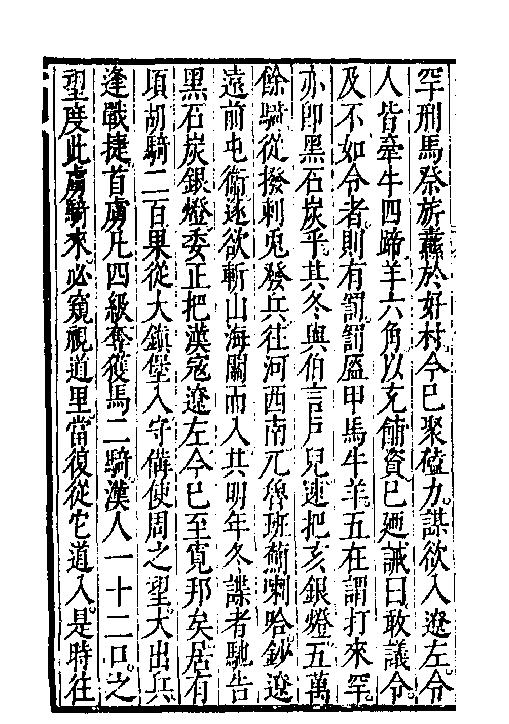 罕刑馬祭旂纛於好村今已聚磕力謀欲入遼左令
人皆牽牛四蹄羊六角以充餔資已廼誡曰敢議令
及不如令者則有罰罰盔甲馬牛羊五在謂打來罕
亦卽黑石炭乎其冬與伯言戶兒速把亥銀燈五萬
餘騎從撥剌兎發兵往河西南兀魯班薊喇哈鈔遼
遠前屯衞遂欲斬山海關而入其明年冬諜者馳告
黑石炭銀燈委正把漢寇遼左今已至寬邦矣居有
頃胡騎二百果從大鎮堡入守備使周之望大出兵
逢戰捷首虜凡四級奪獲馬二騎漢人一十二口之
望度此虜騎來必窺視道里當復從它道入是時往